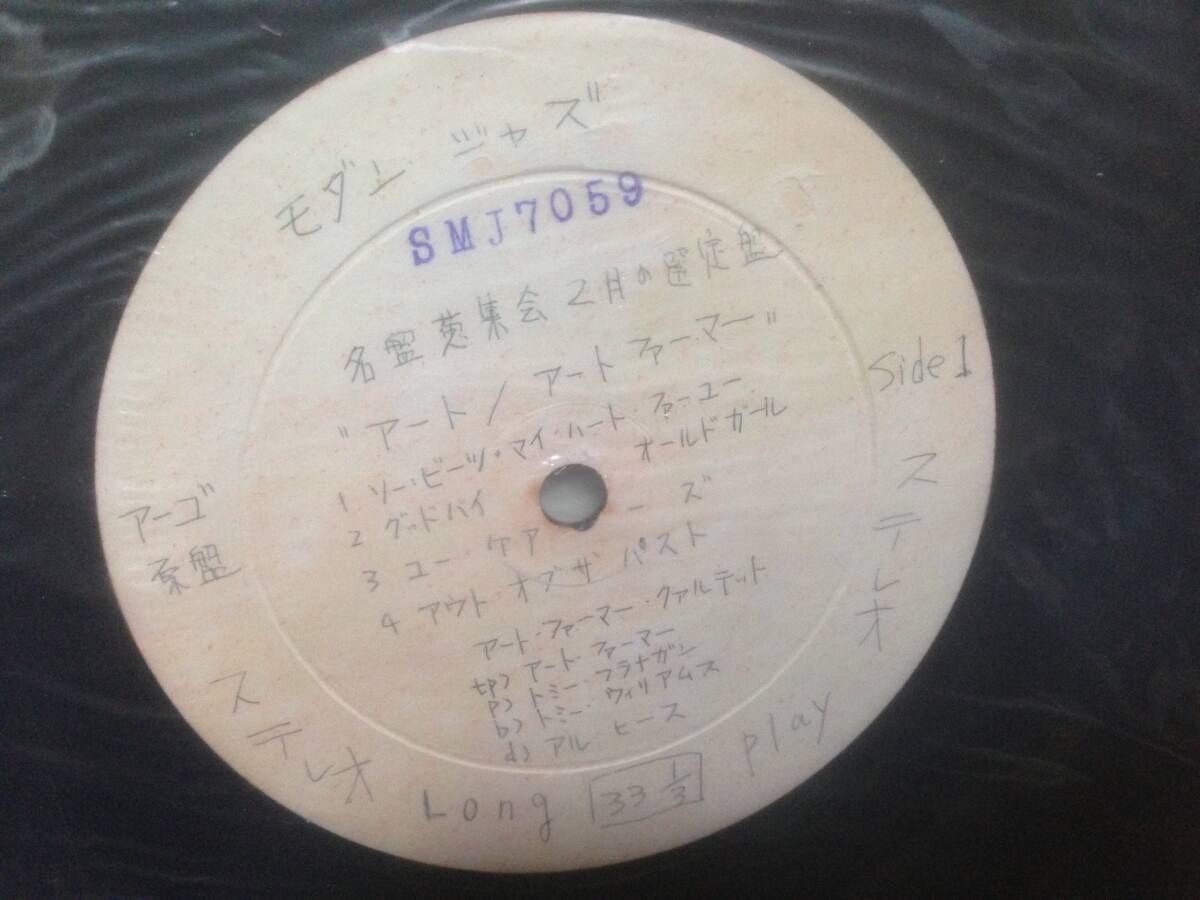 モダン ジャズ"
SMJ7059
名盤蒐集会 2月の選定盤
"アート / アート ファーマー"
1 ソー・ビーツ・マイ・ハート・ファーユー
2 グッドバイ オールドガール
3 ユー・ケア ーズ
4 アウト・オブ ザ パスト
アート・ファーマー・クァルテット
tp) アート・ファーマー
p) トミー・フラナガン
b) トミー・ウィリアムス
d) アル ヒース
Side 1
アーゴ
原盤
ステレオ
ステレオ
Long 33 1/3 play